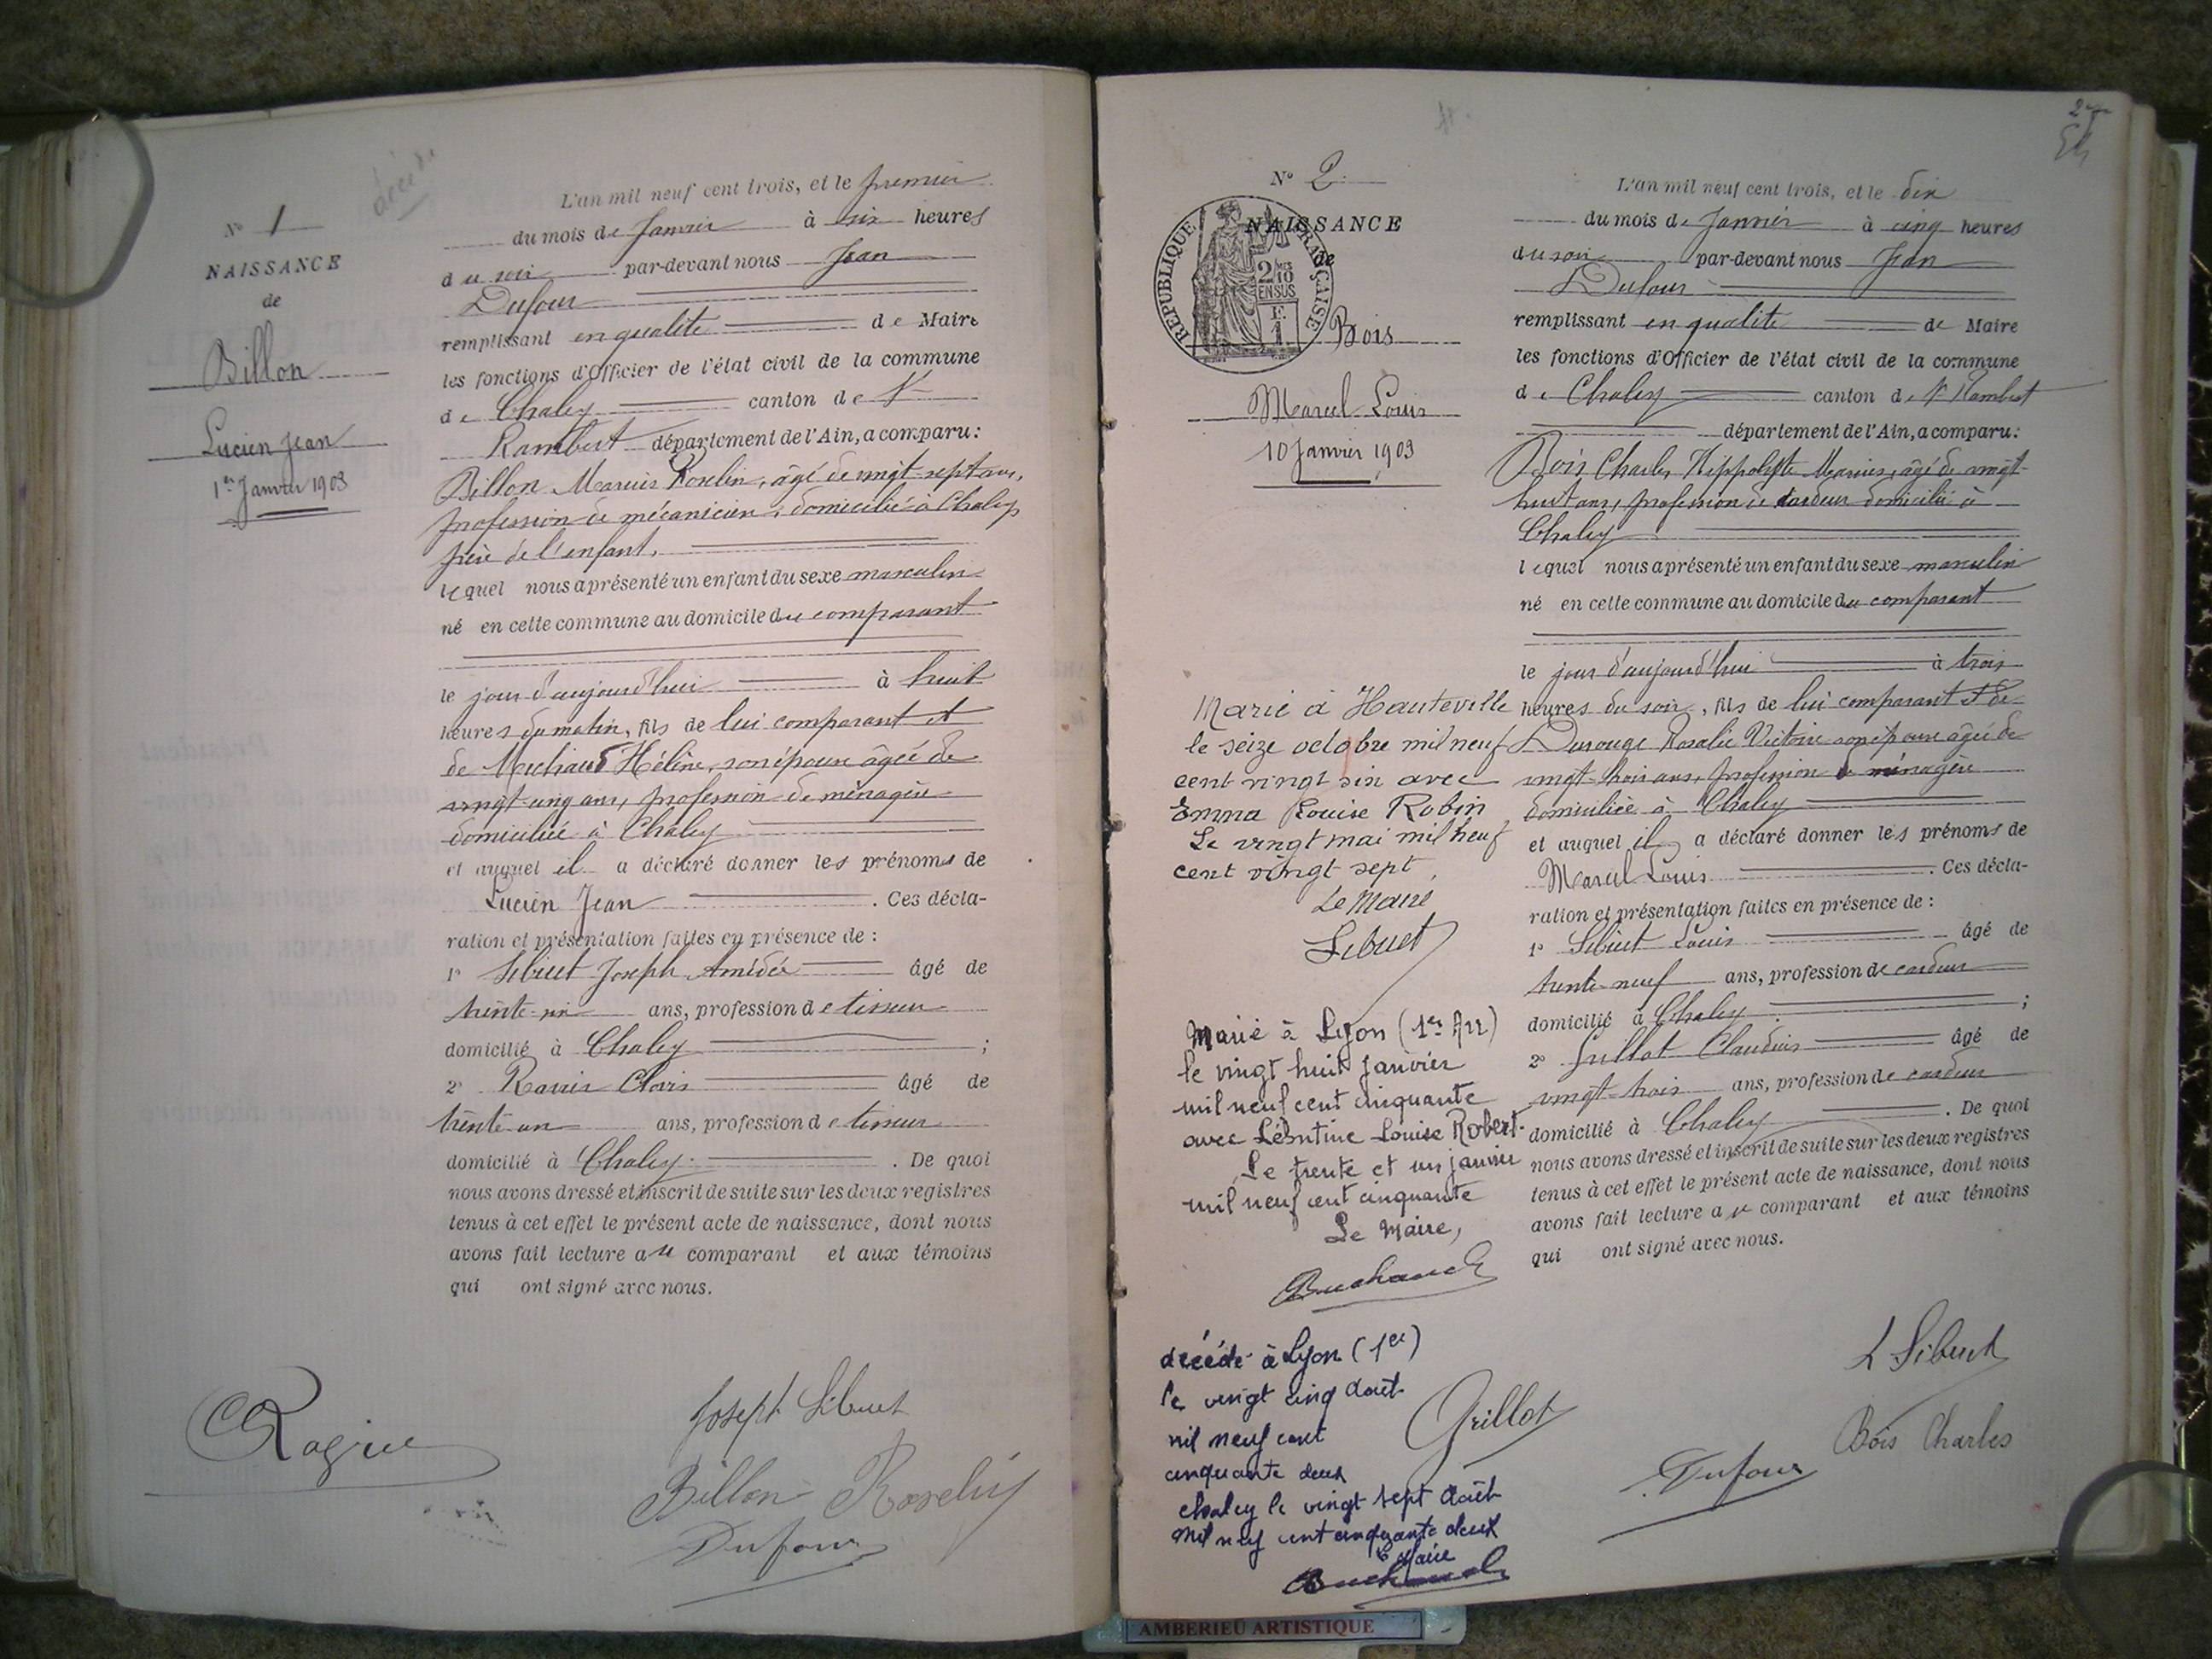 décédé
N° 1
NAISSANCE
de
Billon
Lucien Jean
1er Janvier 1903
L'an mil neuf cent trois, et le premier
du mois de Janvier à six heures
du soir par-devant nous Jean
Dufour
remplissant en qualité de Maire
les fonctions d'Officier de l'état civil de la commune
de Chaley canton de St
Rambert département de l'Ain, a comparu :
Billon Marius Roselin, âgé de vingt-sept ans,
profession de mécanicien, domicilié à Chaley
père de l'enfant.
lequel nous a présenté un enfant du sexe masculin
né en cette commune au domicile du comparant
le jour d'aujourd'hui à huit
heures du matin, fils de lui comparant et
de Michaud Hélène, son épouse âgée de
vingt-cinq ans, profession de ménagère
domiciliée à Chaley
et auquel il a déclaré donner les prénoms de
Lucien Jean . Ces décla-
ration et présentation faites en présence de :
1° Sibuet Joseph Amédée âgé de
trente-six ans, profession de tisseur
domicilié à Chaley ;
2° Clovis âgé de
trente-un ans, profession de tisseur
domicilié à Chaley . De quoi
nous avons dressé et inscrit de suite sur les deux registres
tenus à cet effet le présent acte de naissance, dont nous
avons fait lecture au comparant et aux témoins
qui ont signé avec nous.
Joseph Sibuet
Billon Roselin
Dufour
N° 2
NAISSANCE
de
RÉPUBLIQUE FRANÇAISE
2/10 EN SUS
F. 1
Bois
Marcel Louis
10 Janvier 1903
L'an mil neuf cent trois, et le dix
du mois de Janvier à cinq heures
du soir par-devant nous Jean
Dufour
remplissant en qualité de Maire
les fonctions d'Officier de l'état civil de la commune
de Chaley canton de St Rambert
département de l'Ain, a comparu :
Bois Charles Hippolyte Marius, âgé de vingt-
huit ans, profession de cardeur domicilié à
Chaley
lequel nous a présenté un enfant du sexe masculin
né en cette commune au domicile du comparant
le jour d'aujourd'hui à trois
heures du soir, fils de lui comparant et de
Rosalie Victoire son épouse âgée de
vingt-trois ans, profession de ménagère
domiciliée à Chaley
et auquel il a déclaré donner les prénoms de
Marcel Louis . Ces décla-
ration et présentation faites en présence de :
1° Sibuet Louis âgé de
trente-neuf ans, profession de cardeur
domicilié à Chaley ;
2° Grillot Claudius âgé de
vingt-trois ans, profession de cardeur
domicilié à Chaley . De quoi
nous avons dressé et inscrit de suite sur les deux registres
tenus à cet effet le présent acte de naissance, dont nous
avons fait lecture au comparant et aux témoins
qui ont signé avec nous.
Marié à Hauteville
le seize octobre mil neuf
cent vingt six avec
Emma Louise Robin
Le vingt mai mil neuf
cent vingt sept
Le Maire
Sibuet
Marié à Lyon (1er Arr)
le vingt huit janvier
mil neuf cent cinquante
avec Léontine Louise Robert.
Le trente et un janvier
mil neuf cent cinquante
Le Maire,
décédé à Lyon (1er)
le vingt cinq août
mil neuf cent
cinquante deux
Chaley le vingt sept août
mil neuf cent cinquante deux
Le Maire
L Sibuet
Grillot
Bois Charles
Dufour
AMBERIEU ARTISTIQUE